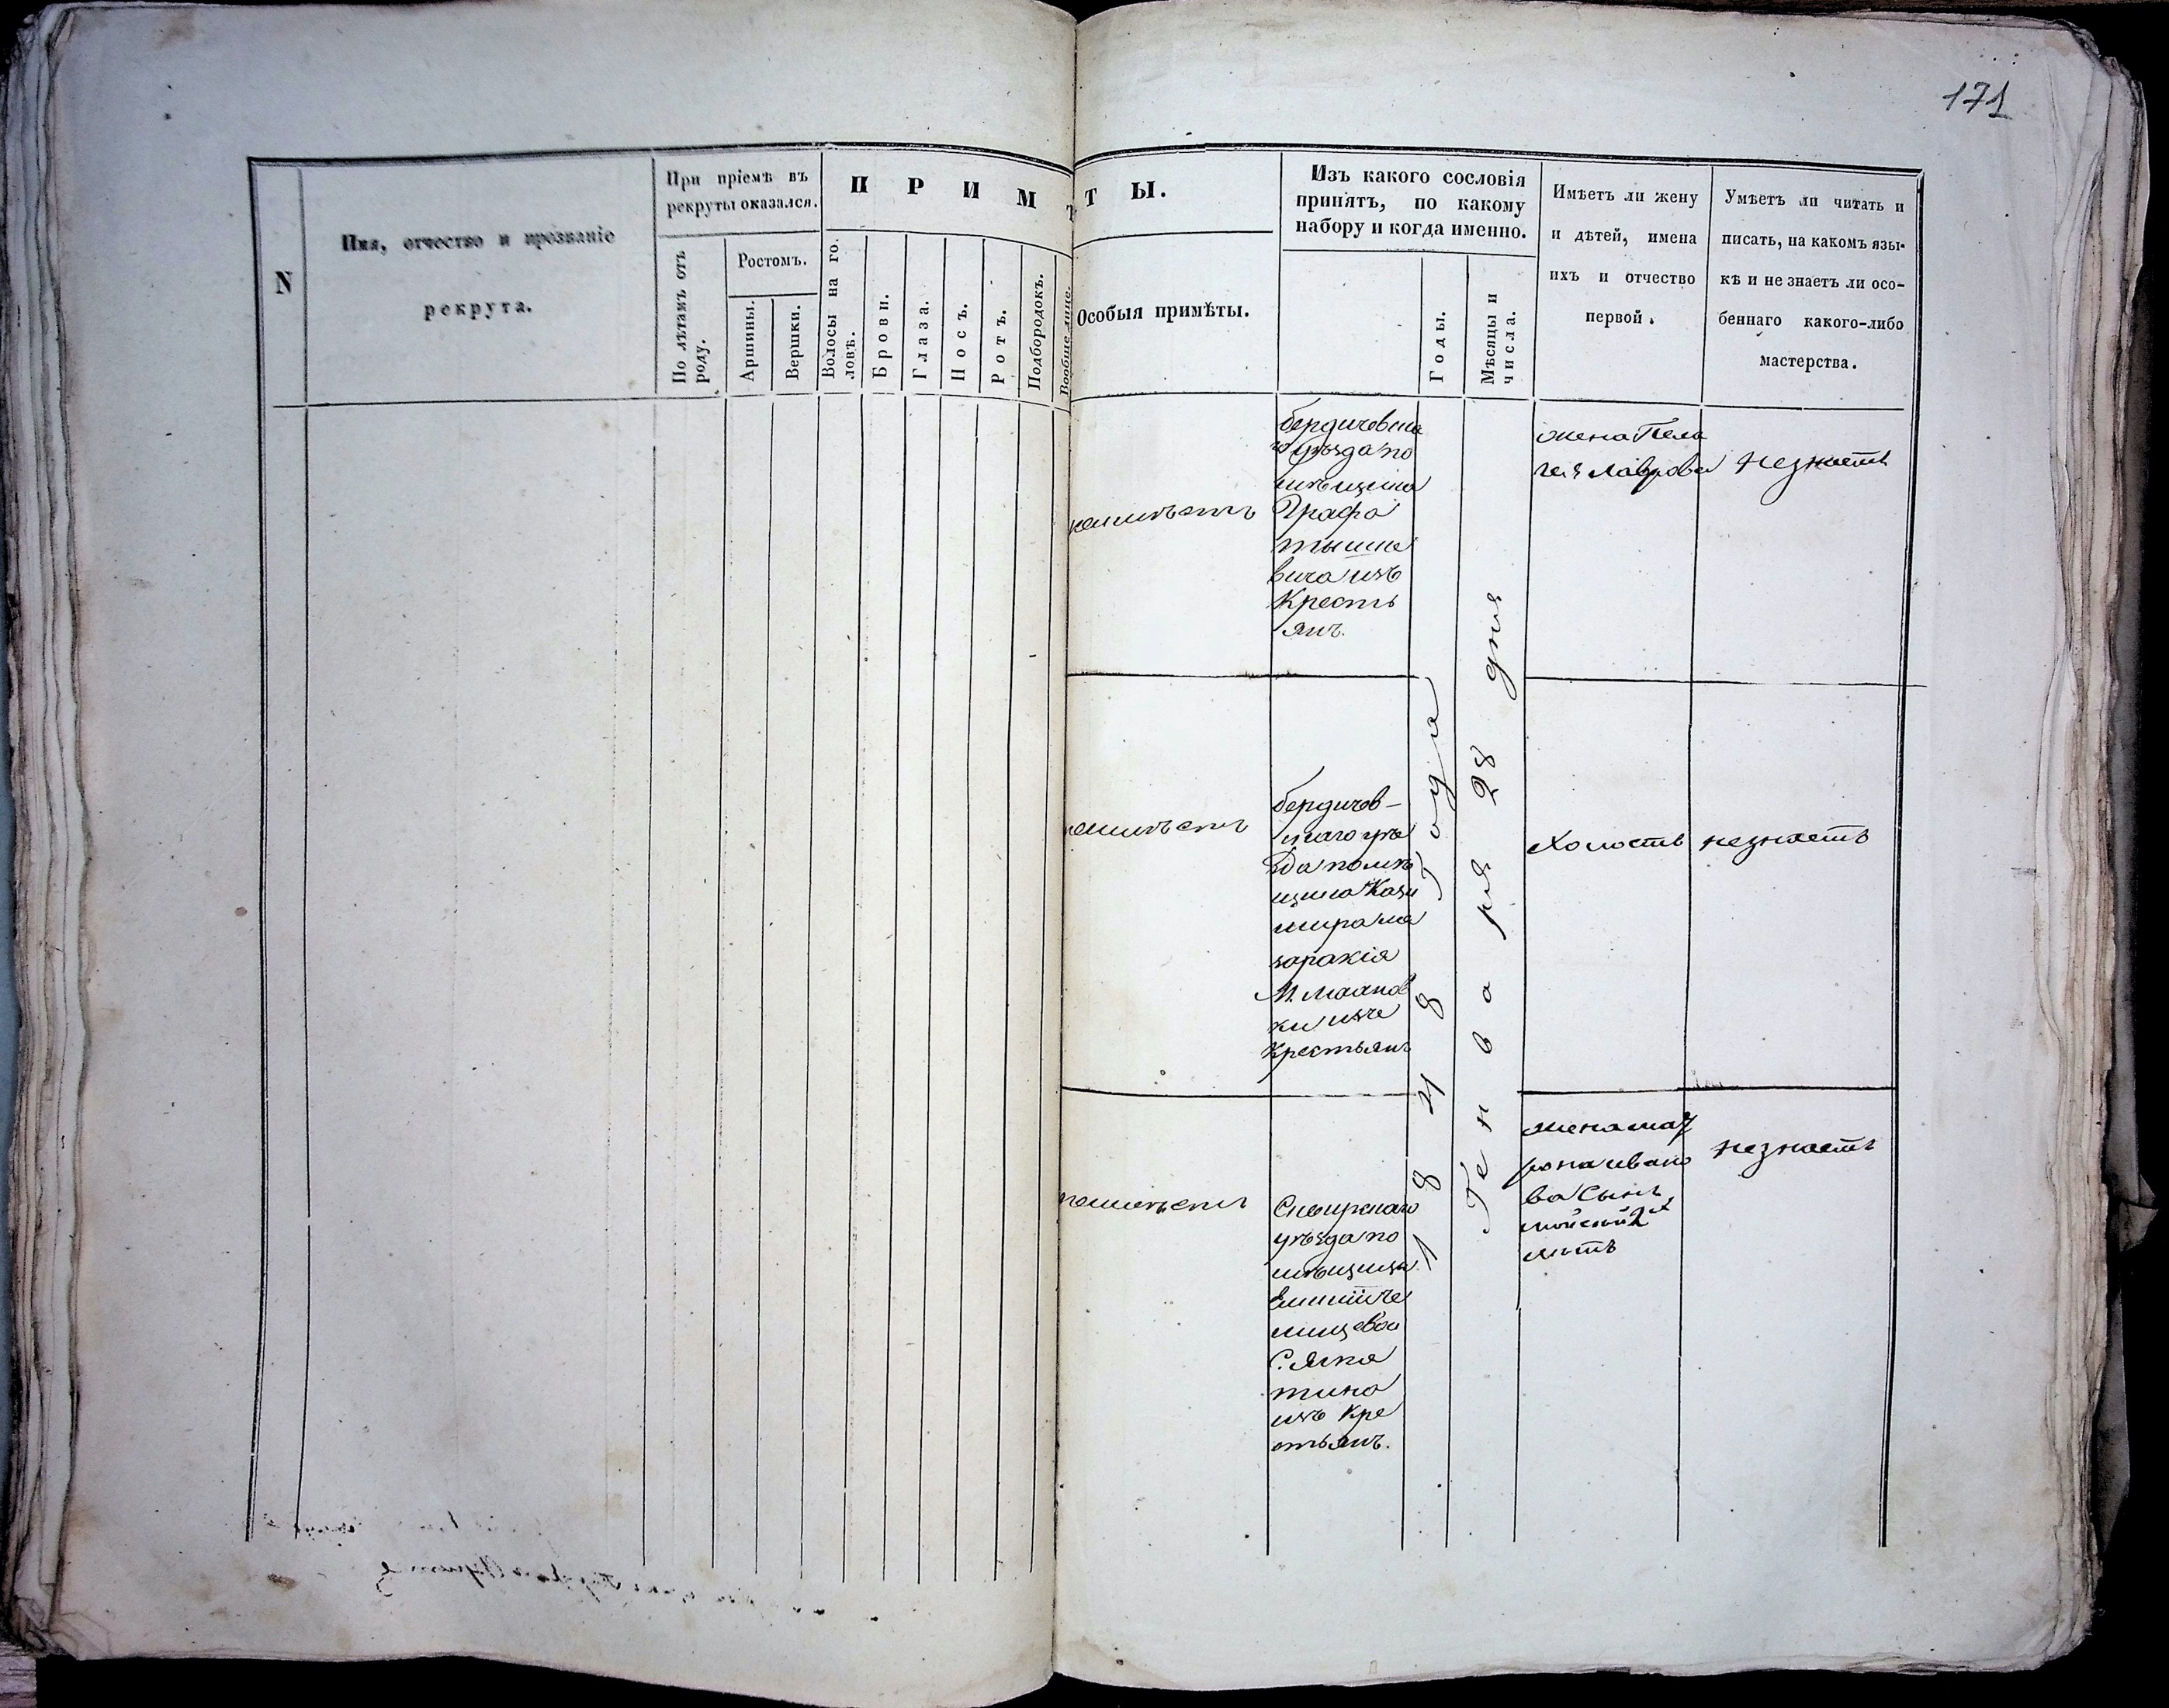 171
N
Имя, отчество и прозваніе
рекрута.
При пріемѣ въ
рекруты оказался.
По лѣтамъ отъ
роду.
Ростомъ.
Аршины.
Вершки.
П Р И М Ѣ Т Ы.
Волосы на го-
ловѣ.
Брови.
Глаза.
Носъ.
Ротъ.
Подбородокъ.
Вообще лице.
Особыя примѣты.
Изъ какого сословія
принятъ, по какому
набору и когда именно.
Годы.
Мѣсяцы и
числа.
Имѣетъ ли жену
и дѣтей, имена
ихъ и отчество
первой.
Умѣетъ ли читать и
писать, на какомъ язы-
кѣ и не знаетъ ли осо-
беннаго какого-либо
мастерства.
неимѣетъ
бердичевска
го уѣзда по
мѣщика
Графа
тышке
вича изъ
Кресть
янъ.
жена Пела
гея Лаврова
незнаетъ
1848 Года
Генваря 28 дня
неимѣетъ
бердичев-
скаго уѣз
да помѣ
щика Кази
мира
М.
ки изъ
Крестьянъ
Холостъ
незнаетъ
неимѣетъ
уѣзда по
мѣщицы
С.
тина
изъ Кре
стьянъ.
жена мат
рона ивано
ва сынъ
2
лѣтъ
незнаетъ